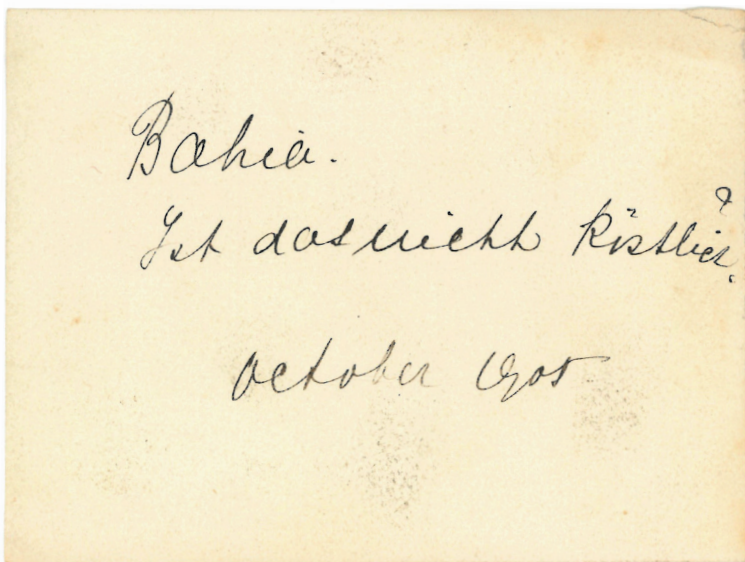 Bahia.
Ist das nicht köstlich?
October 1905